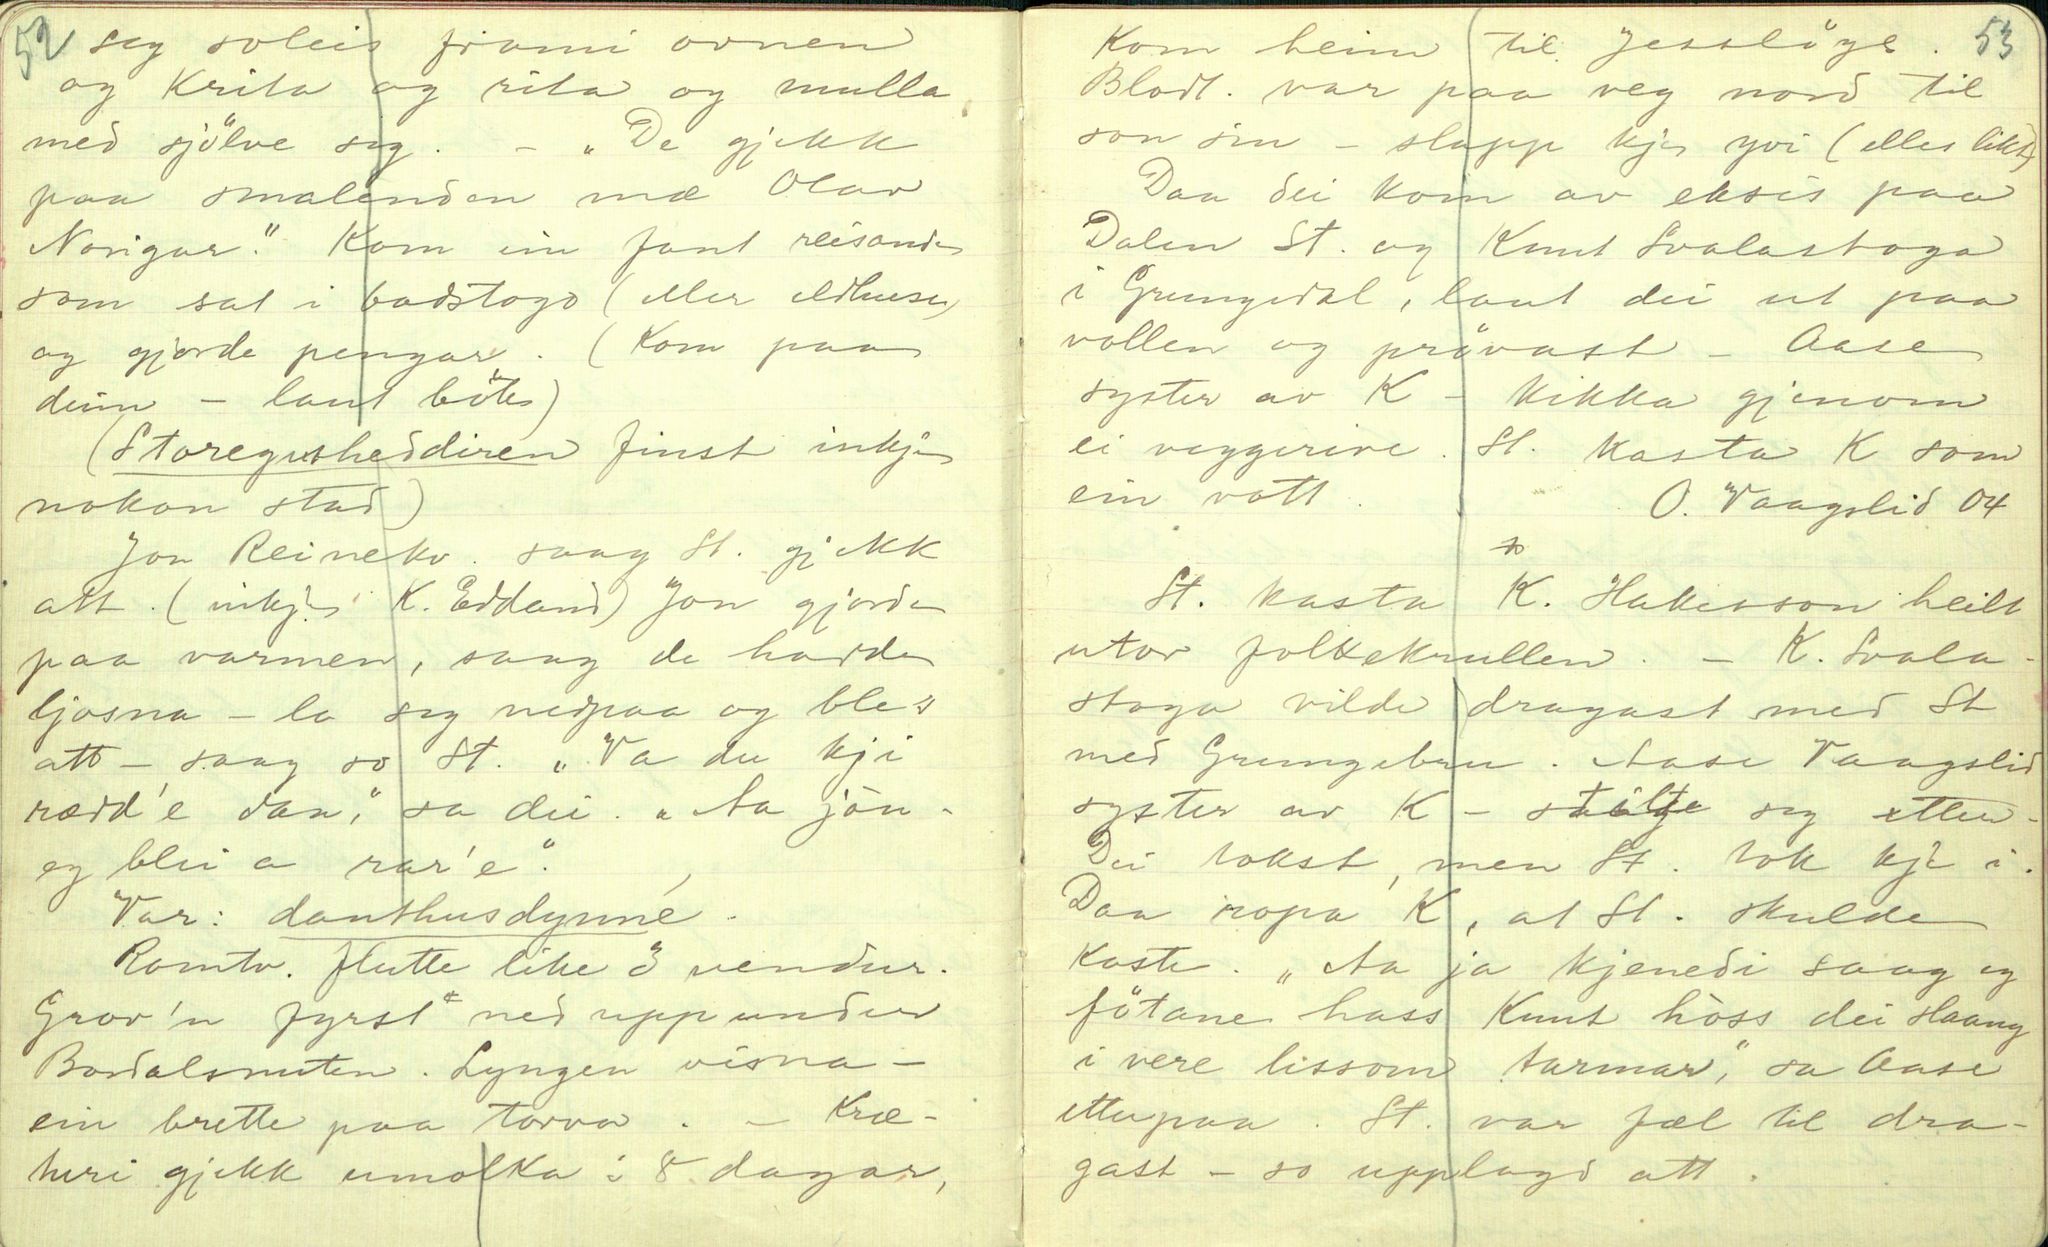 52
seg soleis frami ovnen
og krita og rita og mulla
med sjölve seg. – „De gjekk
paa smalenden mæ Olav
Norigar." Kom ein fant reisande
som sat i badstogo (eller eldhuse)
og gjorde pengar. (Kom paa
deim – laut böte)
(Storegutsheddiren finst inkje
nokon stad)
Jon Reinekv. saag St. gjekk
att. (inkje K. Edland) Jon gjorde
paa varmen, saag de hadde
ljosna – la seg nedpaa og bles
att – saag so St. „Va du kji
rædd'e daa," sa dei. „Aa jön-
eg blei a rar'e".
Var: danthusdynné.
Romtv. flutte like i vendur.
Grov'n fyrst ned upp under
Bordalsnuten. Lyngen visna –
ein brette paa torva. – Kræ-
turi gjekk umolka i 8 dagar,
53
Kom heim til Jesslöyl.
Blodl. var paa veg nord til
son sin – slapp kje yvi (elles likt)
Daa dei kom av eksis paa
Dalen St. og Knut Svalastoga
i Grungedal, laut dei ut paa
vollen og prövast – Aase
syster av K – kikka gjenom
ei veggerive. St. kasta K som
ein vott. O. Vaagslid 04
St. kasta K. Hakesson heilt
utor folkekrullen. – K. Svala-
stoga vilde dragast med St
med Grungebru. Aase Vaagslid
syster av K – stilte seg etter –
Dei tokst, men St. tok kje i.
Daa ropa K, at St. skulde
kaste. „Aa ja kjenedi saag eg
fötane hass Knut höss dei slaang
i vere lissom tarmar," sa Aase
ettepaa. St. var fæl til dra-
gast – so upplagd att.